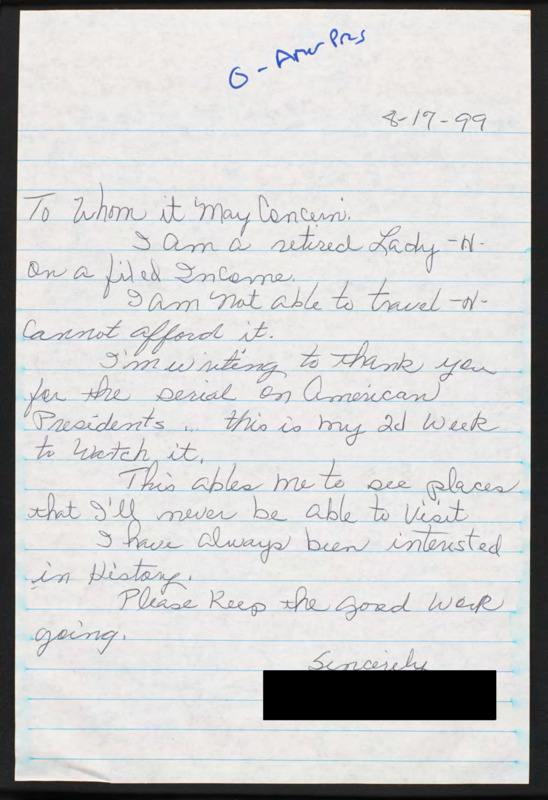 G - Amer Pres
8-17-99
To Whom it May Concern.
I Am a retired Lady -N-
on a filed Income.
I am Not able to travel -N-
Cannot afford it.
I'm writing to thank you
for the serial on American
Presidents ... this is my 2d Week
to Watch it.
This ables me to see places
that I'll never be able to Visit
I have always been interested
in History.
Please Keep the good Work
going.
Sincerely